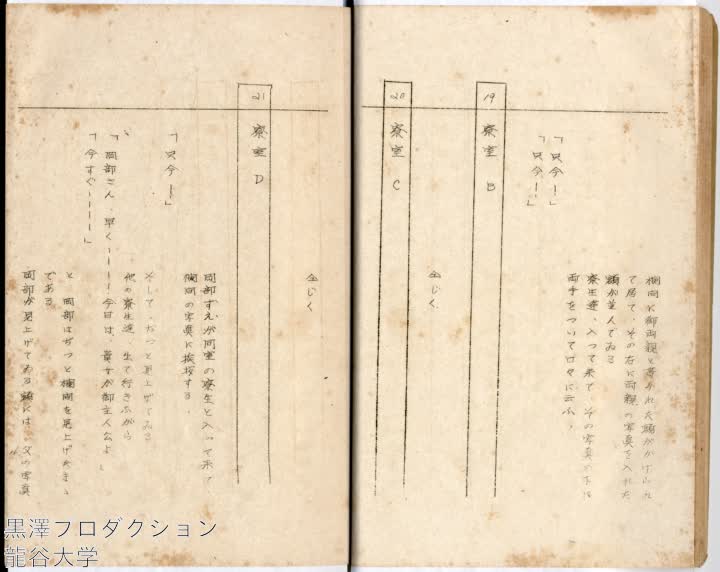 欄間に御両親と書かれた額がかけられ
て居て、その右に両親の写真を入れた
額が並んでゐる
寮生達、入って来て、その写真の下に
両手をついて口々に云ふ、
「只今ー」
「只今ー」
19 寮室 B
全じく
20 寮室 C
全じく
21 寮室 D
岡部すえが同室の寮生と入って来て
欄間の写真に挨拶する、
「只今ー」
そして、ぢっと見上げてゐる
他の寮生達、出て行きながら
「岡部さん、早くーーー今日は、貴女が御主人公よ」
「今すぐーーーー」
と、岡部はぢっと欄間を見上げたまゝ
である
岡部が見上げてゐる額には、父の写真
黒澤プロダクション
龍谷大学